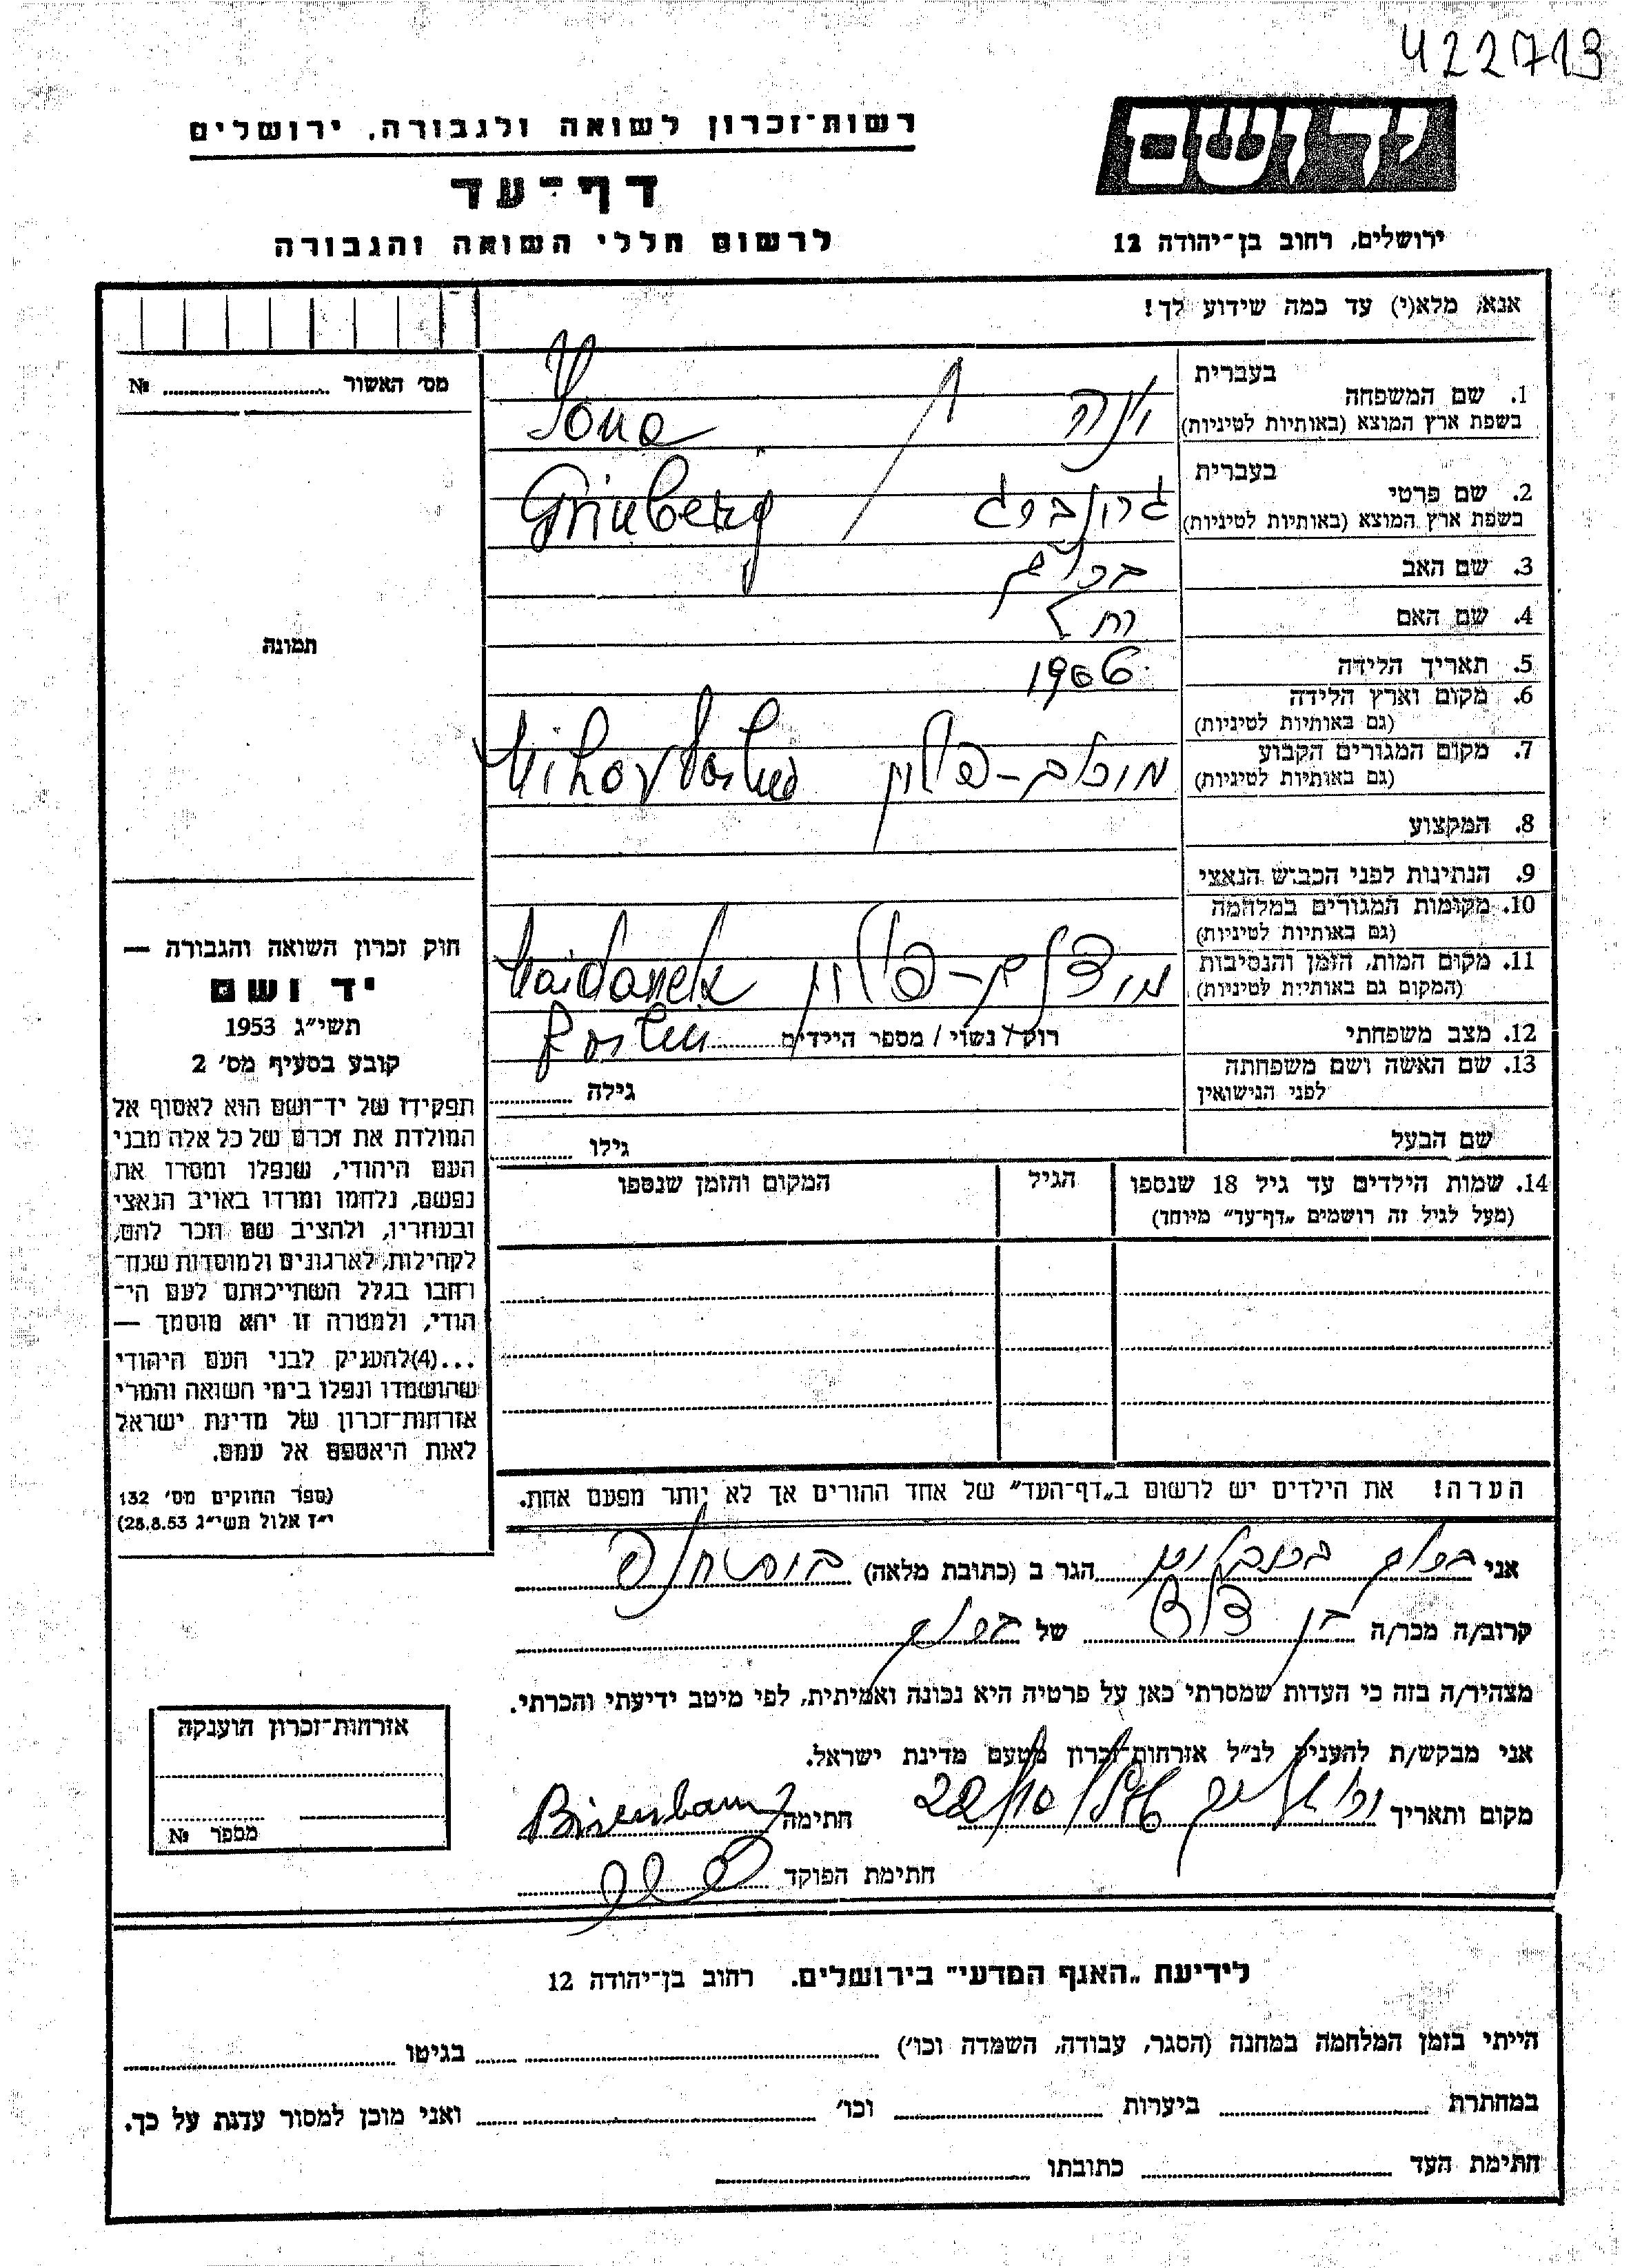 422713
יד ושם
רשות־זכרון לשואה ולגבורה, ירושלים
דף־עד
לרשום חללי השואה והגבורה
ירושלים, רחוב בן־יהודה 12
אנא, מלא(י) עד כמה שידוע לך!
מס' האשור № 
תמונה
בעברית
1. שם המשפחה יונה Yona
בשפת ארץ המוצא (באותיות לטיניות)
בעברית
2. שם פרטי גרונברג Grinberg
בשפת ארץ המוצא (באותיות לטיניות)
3. שם האב
4. שם האם רחל
5. תאריך הלידה 1906
6. מקום וארץ הלידה
(גם באותיות לטיניות)
7. מקום המגורים הקבוע
(גם באותיות לטיניות)
8. המקצוע
9. הנתינות לפני הכבוש הנאצי
10. מקומות המגורים במלחמה
(גם באותיות לטיניות)
11. מקום המות, הזמן והנסיבות Maidanek
(המקום גם באותיות לטיניות)
12. מצב משפחתי רוק / נשוי / מספר הילדים
13. שם האשה ושם משפחתה
לפני הנישואין גילה
שם הבעל גילו
14. שמות הילדים עד גיל 18 שנספו הגיל המקום והזמן שנספו
(מעל לגיל זה רושמים „דף־עד" מיוחד)
הערה! את הילדים יש לרשום ב„דף־העד" של אחד ההורים אך לא יותר מפעם אחת.
חוק זכרון השואה והגבורה —
יד ושם
תשי״ג 1953
קובע בסעיף מס' 2
תפקידו של יד־ושם הוא לאסוף אל
המולדת את זכרם של כל אלה מבני
העם היהודי, שנפלו ומסרו את
נפשם, נלחמו ומרדו באויב הנאצי
ובעוזריו, ולהציב שם וזכר להם,
לקהילות, לארגונים ולמוסדות שנח־
רחבו בגלל השתייכותם לעם הי־
הודי, ולמטרה זו יהא מוסמך —
...(4)להעניק לבני העם היהודי
שהושמדו ונפלו בימי השואה והמרי
אזרחות־זכרון של מדינת ישראל
לאות היאספם אל עמם.
(ספר החוקים מס' 132
י״ז אלול תשי״ג 28.8.53)
אני הגר ב (כתובת מלאה)
קרוב/ה מכר/ה בן דוד של
מצהיר/ה בזה כי העדות שמסרתי כאן על פרטיה היא נכונה ואמיתית, לפי מיטב ידיעתי והכרתי.
אני מבקש/ת להעניק לנ״ל אזרחות־זכרון מטעם מדינת ישראל.
מקום ותאריך חתימה
חתימת הפוקד
אזרחות־זכרון הוענקה
מספר №
לידיעת „האגף המדעי" בירושלים. רחוב בן־יהודה 12
הייתי בזמן המלחמה במחנה (הסגר, עבודה, השמדה וכו') בגיטו
במחתרת ביערות וכו' ואני מוכן למסור עדות על כך.
חתימת העד כתובתו